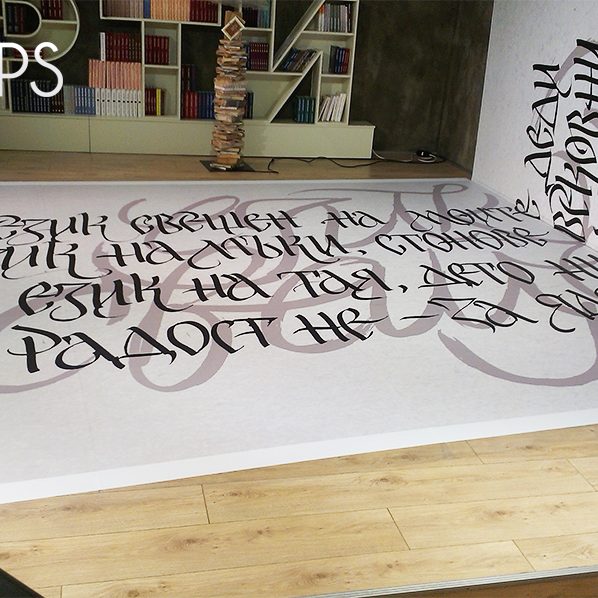 PS
ЕЗИК СВЕЩЕН НА МОИТЕ ДЕДИ
ИК НА МЪКИ СТОНОВЕ ВЕКОВНИ
ЕЗИК НА ТАЯ, ДЕТО НИ
РАДОСТ НЕ – ЗА